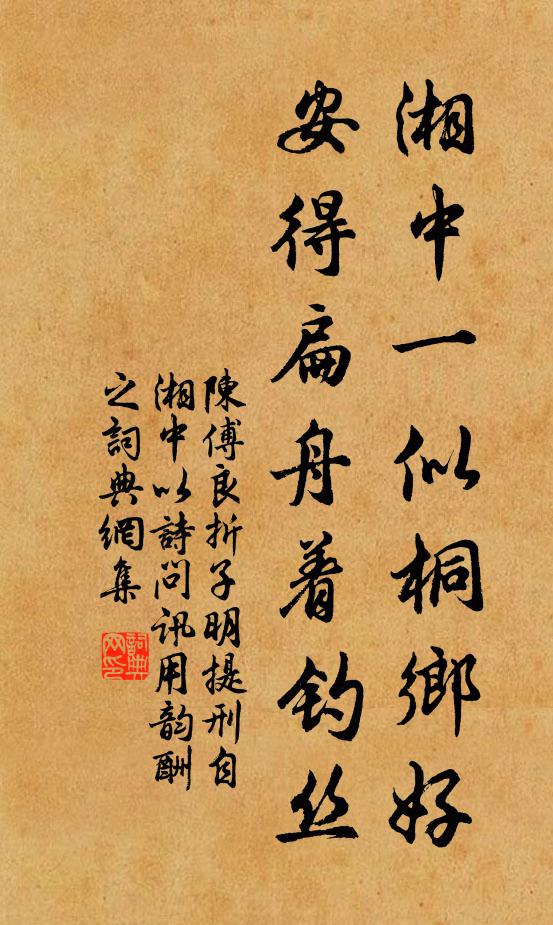 湘中一似桐鄉好
安得扁舟着钓丝
陳傅良折子明提刑自
湘中以詩問訊用韵酬
之詞典網集
詞典网印